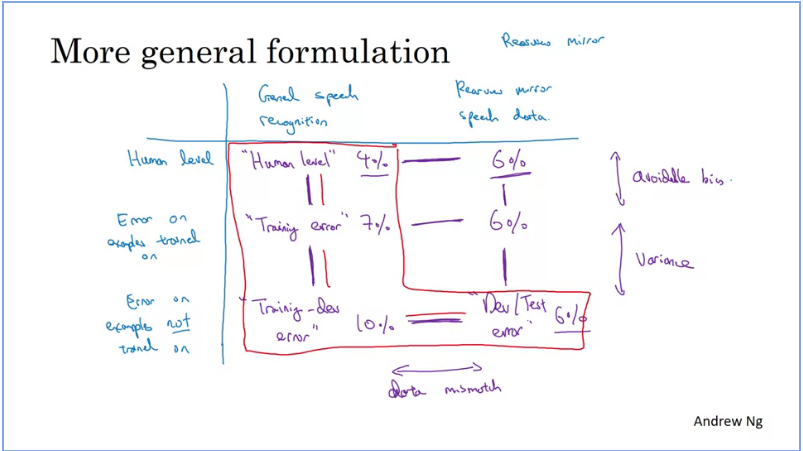 More general formulation
Rearview mirror
General speech
recognition
Rearview mirror
speech data.
Human level
"Human level" 4%
6%
avoidable bias.
Error on
examples trained
on
"Training error" 7%
6%
Variance
Error on
examples not
trained on
"Training-dev
error"
10%
"Dev/Test
error"
6%
data mismatch
Andrew Ng